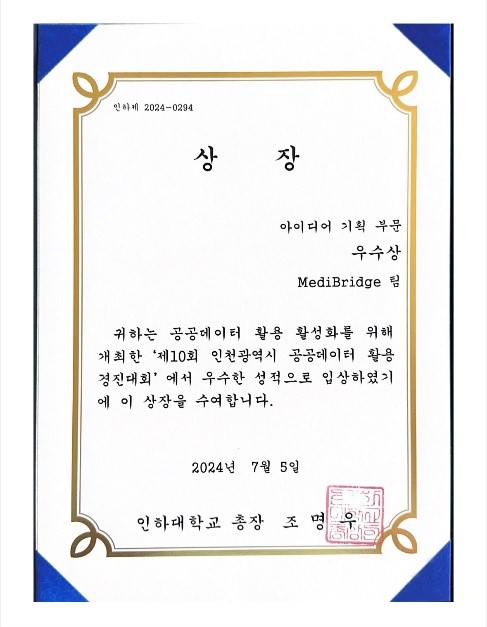 인하제 2024-0294
상 장
아이디어 기획 부문
우수상
MediBridge 팀
귀하는 공공데이터 활용 활성화를 위해
개최한 '제10회 인천광역시 공공데이터 활용
경진대회' 에서 우수한 성적으로 입상하였기
에 이 상장을 수여합니다.
2024년 7월 5일
인하대학교 총장 조 명 우